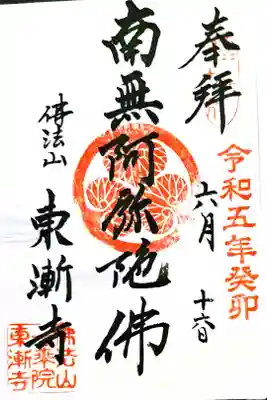 奉拝
令和五年癸卯
六月 十六日
南無阿弥陀佛
佛法山
東漸寺
佛法山
東漸寺